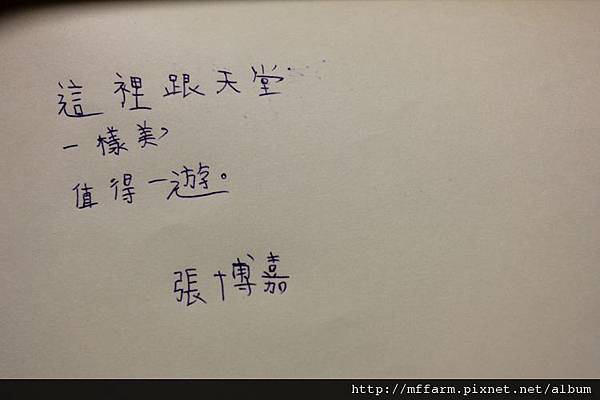 這裡跟天堂
一樣美，
值得一遊。
張博嘉
http://mffarm.pixnet.net/album